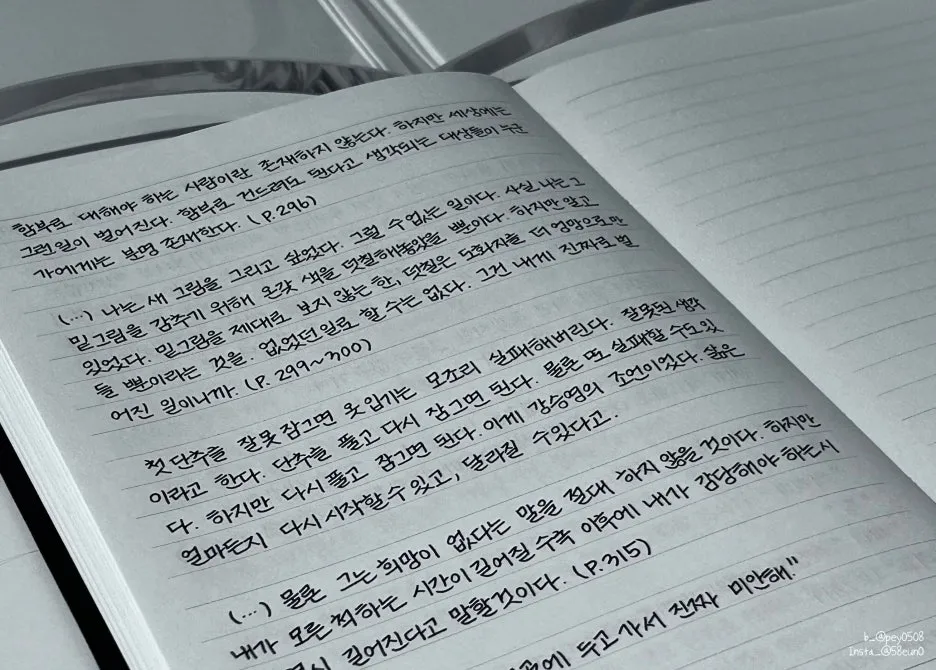 함부로 대해야 하는 사람이란 존재하지 않는다. 하지만 세상에는
그런 일이 벌어진다. 함부로 건드려도 된다고 생각되는 대상들이 누군
가에게는 분명 존재한다. (P.296)
(...) 나는 새 그림을 그리고 싶었다. 그럴 수 없는 일이다. 사실 나는 그
밑그림을 감추기 위해 온갖 색을 덧칠해놓았을 뿐이다. 하지만 알고
있었다. 밑그림을 제대로 보지 않는 한, 덧칠은 도화지를 더 엉망으로 만
들 뿐이라는 것을. 없었던 일로 할 수는 없다. 그건 내게 진짜로 벌
어진 일이니까. (P. 299~300)
첫 단추를 잘못 잠그면 옷 입기는 모조리 실패해버린다. 잘못된 생각
이라고 한다. 단추를 풀고 다시 잠그면 된다. 물론 또 실패할 수도 있
다. 하지만 다시 풀고 잠그면 된다. 이게 강승영의 조언이었다. 삶은
얼마든지 다시 시작할 수 있고, 달라질 수 있다고.
(...) 물론 그는 희망이 없다는 말을 절대 하지 않을 것이다. 하지만
내가 모른 척하는 시간이 길어질수록 이후에 내가 감당해야 하는 시
길어진다고 말할 것이다. (P.315)
두고 가서 진짜 미안해."
b_@pey0508
Insta_@58eun0